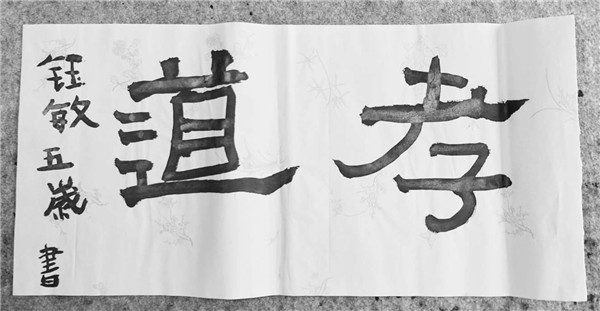 孝道
钰敏五歲書